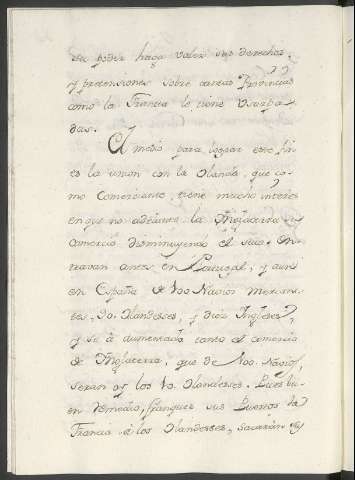 su poder haga valer sus derechos,
y pretensiones sobre tantas Provincias
como la Francia le tiene Usurpa-
das.
El medio para lograr este fin
es la union con la Olanda, que co-
mo Comerciante, tiene mucho interes
en que no adelante la Inglaterra su
comercio disminuyendo el suio. En-
travan antes en Portugal, y aun
en España de 100 Navios Mercan-
tes, 90. Olandeses, y diez Ingleses,
y se à aumentado tanto el comercio
de Inglaterra, que de 100. Navios,
seran oy los 10. Olandeses. Pues bu-
en remedio, franquee sus Puertos la
Francia à los Olandeses, sacarán